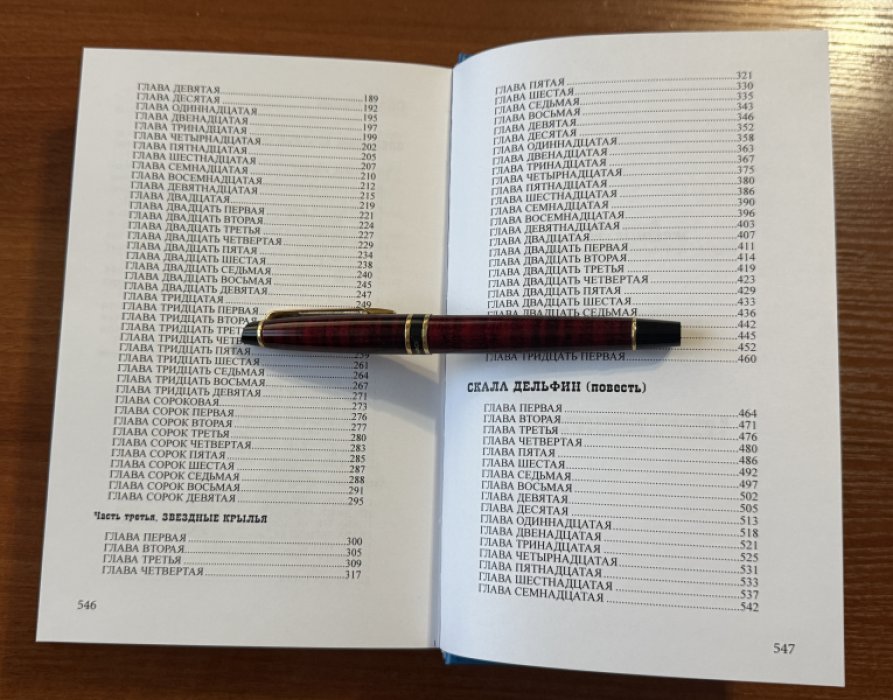 ГЛАВА ДЕВЯТАЯ 189
ГЛАВА ДЕСЯТАЯ 192
ГЛАВА ОДИННАДЦАТАЯ 195
ГЛАВА ДВЕНАДЦАТАЯ 197
ГЛАВА ТРИНАДЦАТАЯ 199
ГЛАВА ЧЕТЫРНАДЦАТАЯ 202
ГЛАВА ПЯТНАДЦАТАЯ 205
ГЛАВА ШЕСТНАДЦАТАЯ 207
ГЛАВА СЕМНАДЦАТАЯ 210
ГЛАВА ВОСЕМНАДЦАТАЯ 212
ГЛАВА ДЕВЯТНАДЦАТАЯ 215
ГЛАВА ДВАДЦАТАЯ 219
ГЛАВА ДВАДЦАТЬ ПЕРВАЯ 221
ГЛАВА ДВАДЦАТЬ ВТОРАЯ 224
ГЛАВА ДВАДЦАТЬ ТРЕТЬЯ 227
ГЛАВА ДВАДЦАТЬ ЧЕТВЕРТАЯ 229
ГЛАВА ДВАДЦАТЬ ПЯТАЯ 234
ГЛАВА ДВАДЦАТЬ ШЕСТАЯ 238
ГЛАВА ДВАДЦАТЬ СЕДЬМАЯ 240
ГЛАВА ДВАДЦАТЬ ВОСЬМАЯ 245
ГЛАВА ДВАДЦАТЬ ДЕВЯТАЯ 247
ГЛАВА ТРИДЦАТАЯ 249
ГЛАВА ТРИДЦАТЬ ПЕРВАЯ
ГЛАВА ТРИДЦАТЬ ВТОРАЯ
ГЛАВА ТРИДЦАТЬ
ГЛАВА ТРИДЦАТЬ
ГЛАВА ТРИДЦАТЬ ПЯТАЯ 259
ГЛАВА ТРИДЦАТЬ ШЕСТАЯ 261
ГЛАВА ТРИДЦАТЬ СЕДЬМАЯ 264
ГЛАВА ТРИДЦАТЬ ВОСЬМАЯ 267
ГЛАВА ТРИДЦАТЬ ДЕВЯТАЯ 271
ГЛАВА СОРОКОВАЯ 273
ГЛАВА СОРОК ПЕРВАЯ 276
ГЛАВА СОРОК ВТОРАЯ 277
ГЛАВА СОРОК ТРЕТЬЯ 280
ГЛАВА СОРОК ЧЕТВЕРТАЯ 283
ГЛАВА СОРОК ПЯТАЯ 285
ГЛАВА СОРОК ШЕСТАЯ 287
ГЛАВА СОРОК СЕДЬМАЯ 288
ГЛАВА СОРОК ВОСЬМАЯ 291
ГЛАВА СОРОК ДЕВЯТАЯ 295
Часть третья. ЗВЕЗДНЫЕ КРЫЛЬЯ
ГЛАВА ПЕРВАЯ 300
ГЛАВА ВТОРАЯ 305
ГЛАВА ТРЕТЬЯ 309
ГЛАВА ЧЕТВЕРТАЯ 317
546
ГЛАВА ПЯТАЯ 321
ГЛАВА ШЕСТАЯ 330
ГЛАВА СЕДЬМАЯ 335
ГЛАВА ВОСЬМАЯ 343
ГЛАВА ДЕВЯТАЯ 346
ГЛАВА ДЕСЯТАЯ 352
ГЛАВА ОДИННАДЦАТАЯ 358
ГЛАВА ДВЕНАДЦАТАЯ 363
ГЛАВА ТРИНАДЦАТАЯ 367
ГЛАВА ЧЕТЫРНАДЦАТАЯ 375
ГЛАВА ПЯТНАДЦАТАЯ 380
ГЛАВА ШЕСТНАДЦАТАЯ 386
ГЛАВА СЕМНАДЦАТАЯ 390
ГЛАВА ВОСЕМНАДЦАТАЯ 396
ГЛАВА ДЕВЯТНАДЦАТАЯ 403
ГЛАВА ДВАДЦАТАЯ 407
ГЛАВА ДВАДЦАТЬ ПЕРВАЯ 411
ГЛАВА ДВАДЦАТЬ ВТОРАЯ 414
ГЛАВА ДВАДЦАТЬ ТРЕТЬЯ 419
ГЛАВА ДВАДЦАТЬ ЧЕТВЕРТАЯ 423
ГЛАВА ДВАДЦАТЬ ПЯТАЯ 429
ГЛАВА ДВАДЦАТЬ ШЕСТАЯ 433
ГЛАВА ДВАДЦАТЬ СЕДЬМАЯ 436
442
445
452
ГЛАВА ТРИДЦАТЬ ПЕРВАЯ 460
СКАЛА ДЕЛЬФИН (повесть)
ГЛАВА ПЕРВАЯ 464
ГЛАВА ВТОРАЯ 471
ГЛАВА ТРЕТЬЯ 476
ГЛАВА ЧЕТВЕРТАЯ 480
ГЛАВА ПЯТАЯ 486
ГЛАВА ШЕСТАЯ 492
ГЛАВА СЕДЬМАЯ 497
ГЛАВА ВОСЬМАЯ 502
ГЛАВА ДЕВЯТАЯ 505
ГЛАВА ДЕСЯТАЯ 513
ГЛАВА ОДИННАДЦАТАЯ 518
ГЛАВА ДВЕНАДЦАТАЯ 521
ГЛАВА ТРИНАДЦАТАЯ 525
ГЛАВА ЧЕТЫРНАДЦАТАЯ 531
ГЛАВА ПЯТНАДЦАТАЯ 533
ГЛАВА ШЕСТНАДЦАТАЯ 537
ГЛАВА СЕМНАДЦАТАЯ 542
547